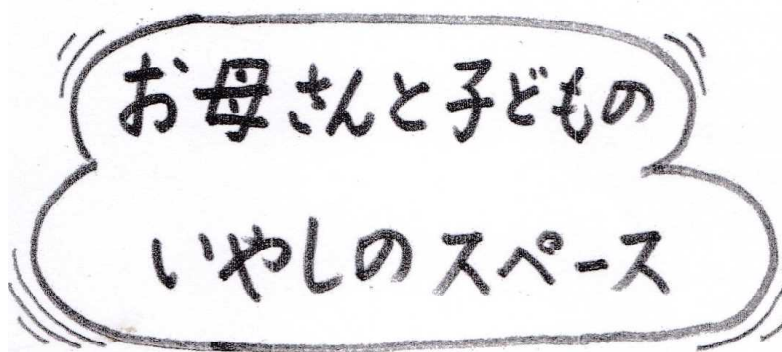 お母さんと子どもの
いやしのスペース